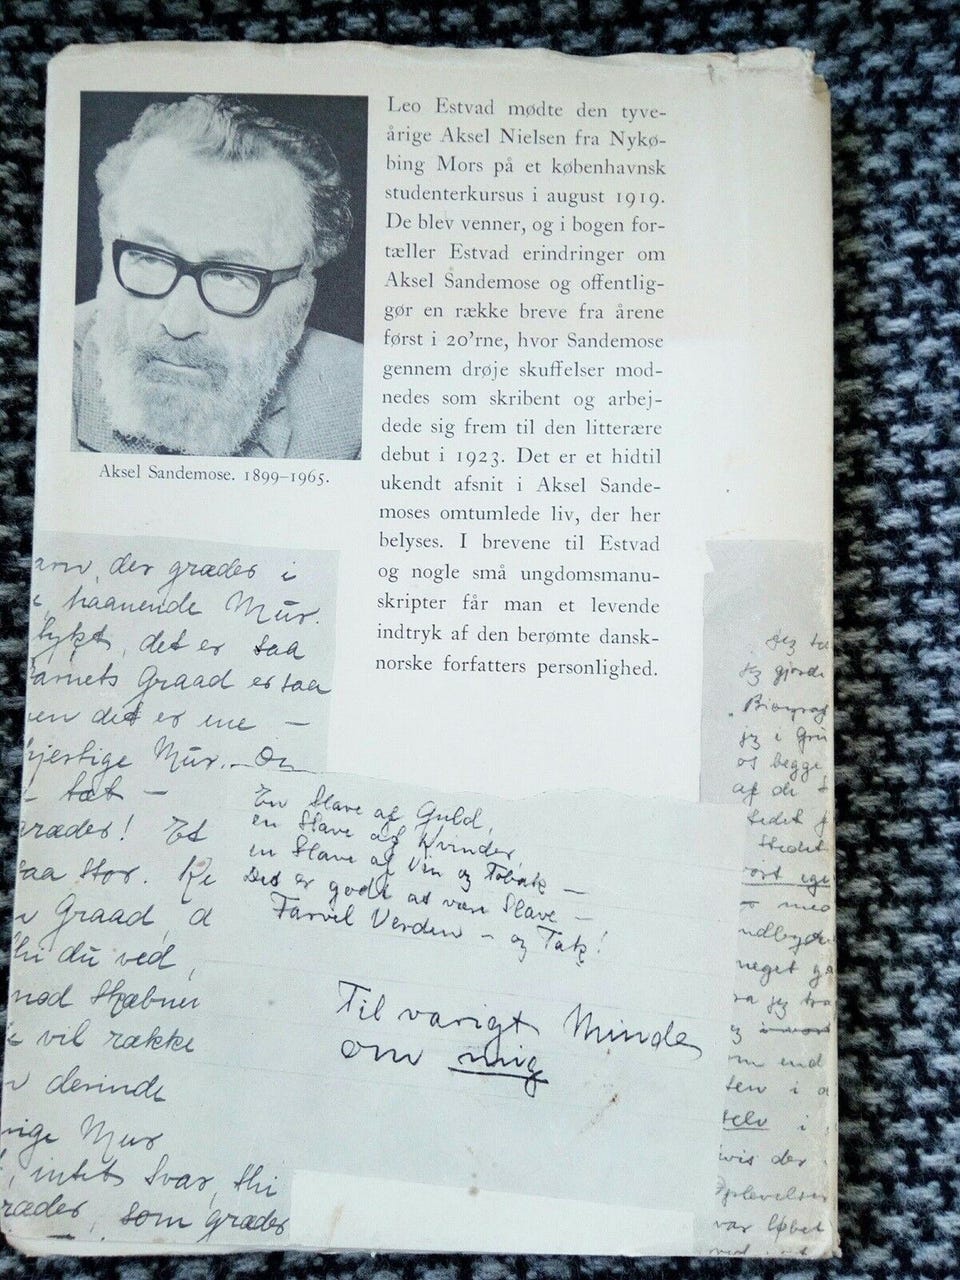 Leo Estvad mødte den tyve-
årige Aksel Nielsen fra Nykø-
bing Mors på et københavnsk
studenterkursus i august 1919.
De blev venner, og i bogen for-
tæller Estvad erindringer om
Aksel Sandemose og offentlig-
gør en række breve fra årene
først i 20'rne, hvor Sandemose
gennem drøje skuffelser mod-
nedes som skribent og arbej-
dede sig frem til den litterære
debut i 1923. Det er et hidtil
ukendt afsnit i Aksel Sande-
moses omtumlede liv, der her
belyses. I brevene til Estvad
og nogle små ungdomsmanu-
skripter får man et levende
indtryk af den berømte dansk-
norske forfatters personlighed.
Aksel Sandemose. 1899–1965.
der græder i
haanende Mur.
det er saa
Graad er saa
det er me –
Mur.
tæt –
græder! Et
saa stor. Ke
Graad, d
thi du ved,
mod Skæbnen
vil række
derinde
Mur
intet Svar, thi
græder, som græder
En Slave af Guld,
en Slave af Kvinder,
en Slave af Vin og Tobak –
Det er godt at være Slave –
Farvel Verden – og Tak!
Til varigt Minde
om mig
jeg
jeg gjorde
jeg i
og begge
af de
Stedet
med
meget
jeg
om end
i
selv i
hvis der
Oplevelser
var løbet